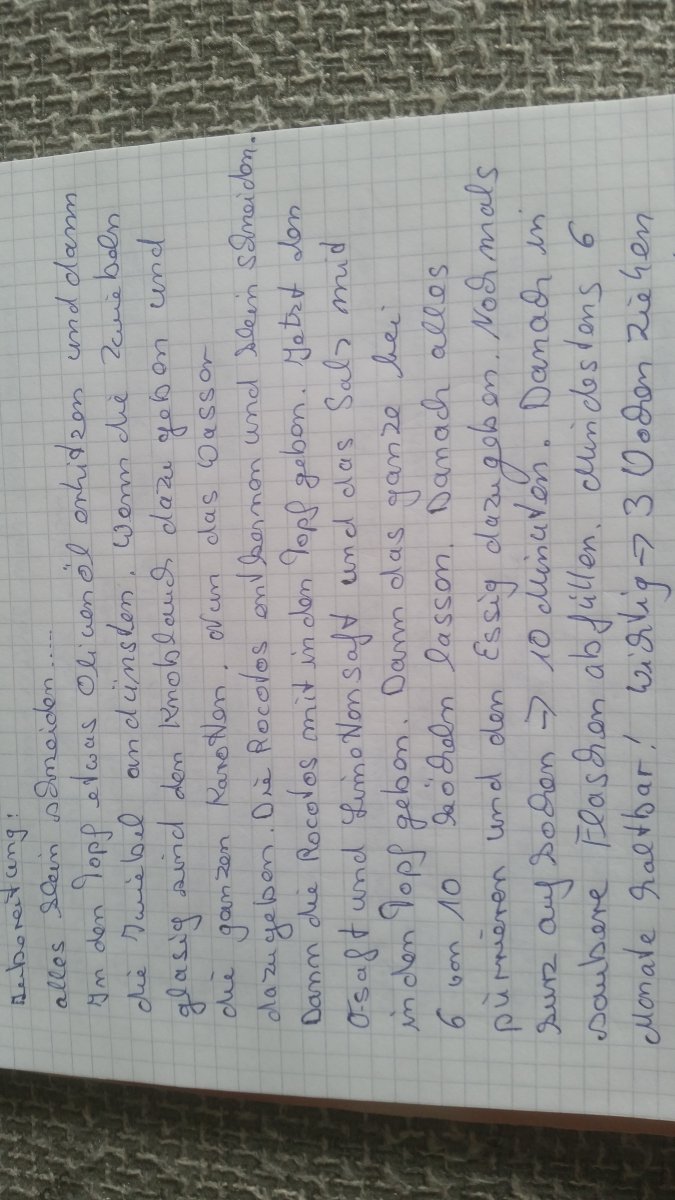 Zubereitung:
alles klein schneiden.....
In den Topf etwas Olivenöl erhitzen und dann
die Zwiebel andünsten. Wenn die Zwiebeln
glasig sind den Knoblauch dazu geben und
die ganzen Karotten. Nun das Wasser
dazugeben. Die Rocotos entkernen und klein schneiden.
Dann die Rocotos mit in den Topf geben. Jetzt den
O-saft und Limettensaft und das Salz mit
in den Topf geben. Dann das ganze bei
6 von 10 köcheln lassen. Danach alles
pürrieren und den Essig dazugeben. Nochmals
kurz aufkochen → 10 Minuten. Danach in
saubere Flaschen abfüllen. Mindestens 6
Monate haltbar! Wichtig → 3 Wochen ziehen